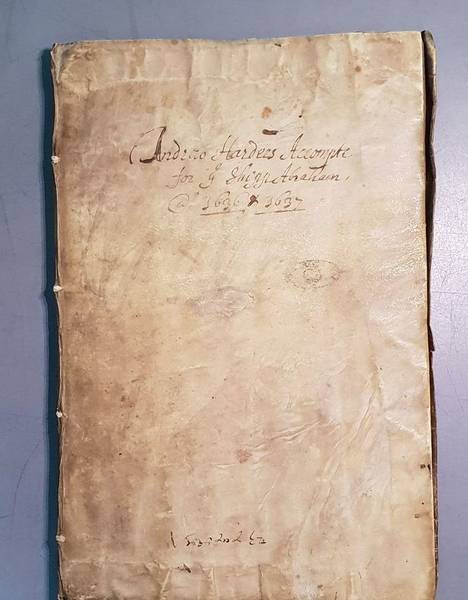 Andrew Hardees Accompte
for yͤ Shipp Abraham,
1636 & 1637